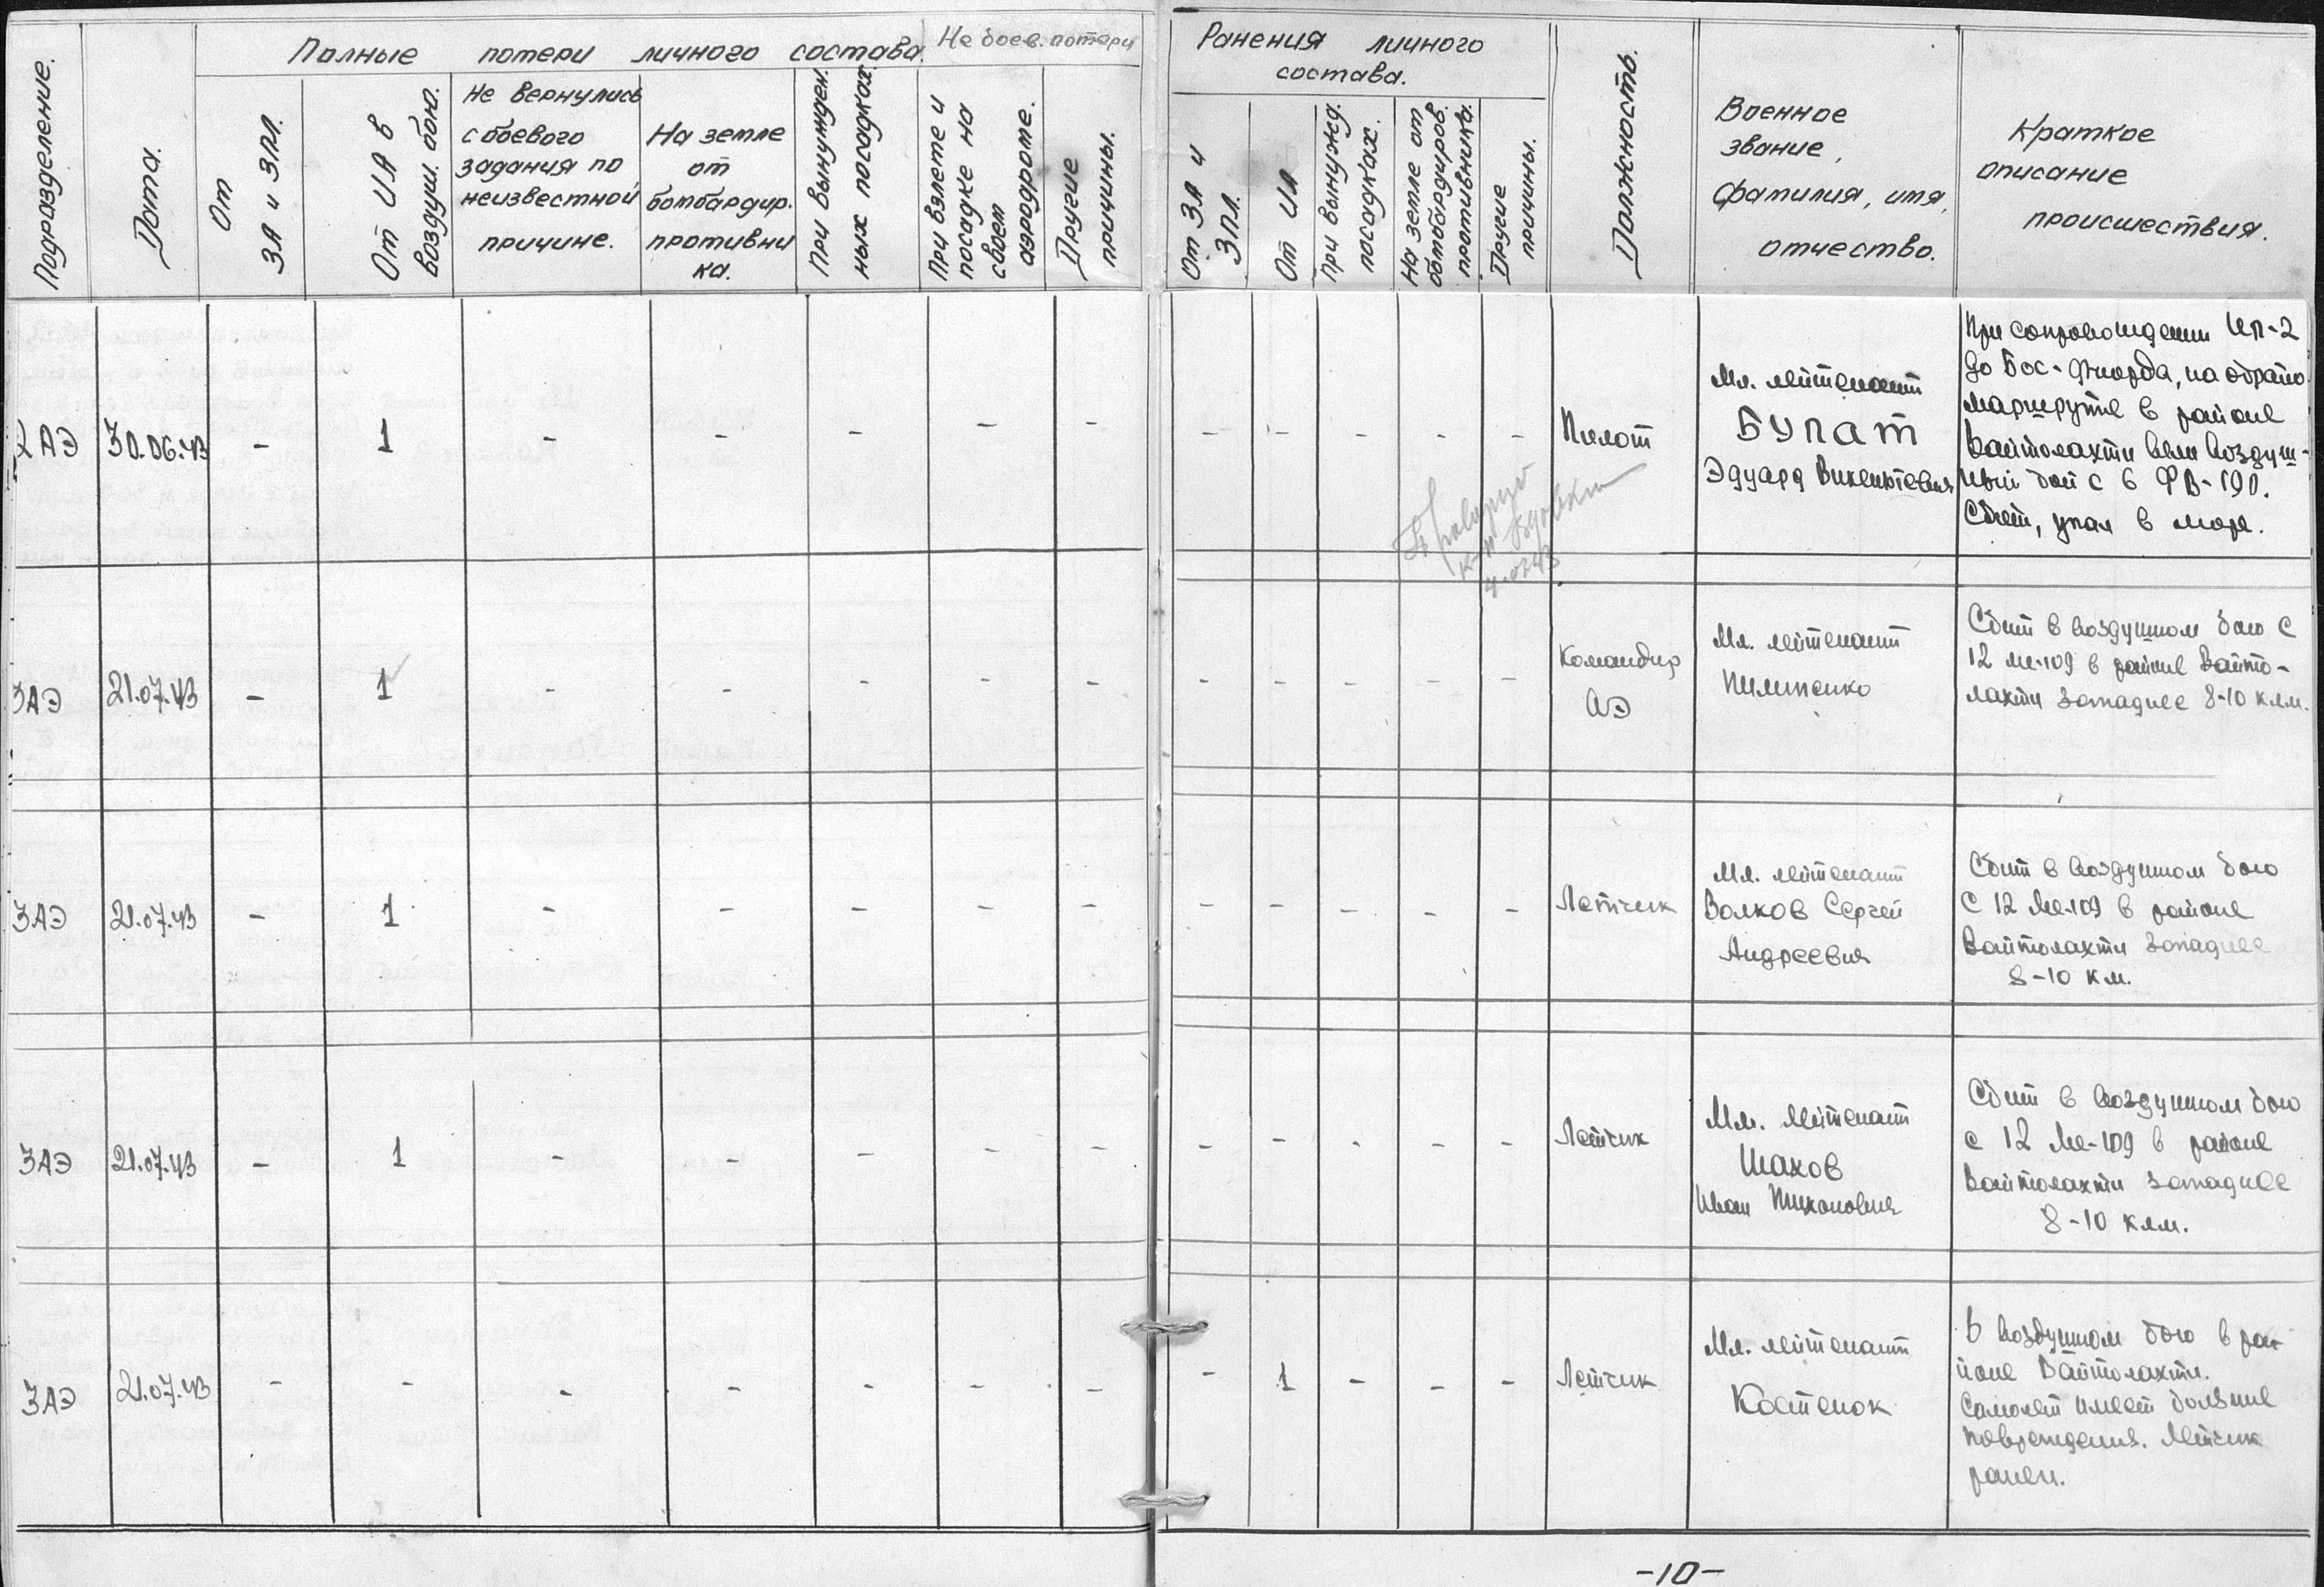 Подразделение.
Дата.
Полные потери личного состава.
Не боев. потери
От
ЗА и ЗПЛ.
От ИА в
воздуш. бою.
Не вернулись
с боевого
задания по
неизвестной
причине.
На земле
от
бомбардир.
противни
ка.
При вынужден.
ных посадках.
При взлете и
посадке на
своем
аэродроме.
Другие
причины.
Ранения личного
состава.
От ЗА и
ЗПЛ.
От ИА
При вынужд.
посадках.
На земле от
бомбардиров.
противника.
Другие
причины.
Должность.
Военное
звание,
фамилия, имя,
отчество.
Краткое
описание
происшествия.
2 АЭ 30.06.43 - 1 - - - - - - - - - - Пилот
Мл. лейтенант
БУЛАТ
Эдуард Викентьевич
При сопровождении Ил-2
до Бос-фиорда, на обратно
маршруте в районе
Вайтолахти вели воздуш-
ный бой с 6 ФВ-190.
Сбит, упал в море.
к-н
4.07.43
3АЭ 21.07.43 - 1 - - - - - - - - - -
Командир
АЭ
Мл. лейтенант
Пилипенко
Сбит в воздушном бою с
12 Ме-109 в районе Вайто-
лахти западнее 8-10 клм.
3АЭ 21.07.43 - 1 - - - - - - - - - - Летчик
Мл. лейтенант
Волков Сергей
Андреевич
Сбит в воздушном бою
с 12 Ме-109 в районе
Вайтолахти западнее
8-10 км.
3АЭ 21.07.43 - 1 - - - - - - - - - - Летчик
Мл. лейтенант
Шахов
Иван Тихонович
Сбит в воздушном бою
с 12 Ме-109 в районе
Вайтолахти западнее
8-10 клм.
3АЭ 21.07.43 - - - - - - - - 1 - - - Летчик
Мл. лейтенант
Костенок
В воздушном бою в ра-
йоне Вайтолахти.
Самолет имеет большие
повреждения. Летчик
ранен.
-10-